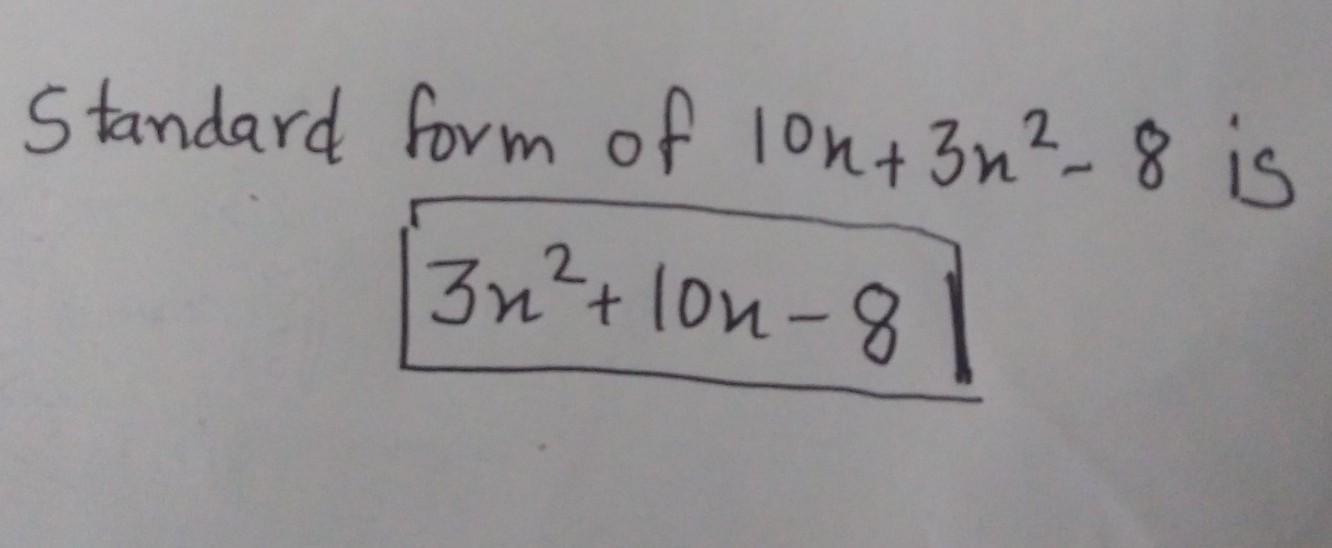 Standard form of 10x + 3x² - 8 is
3x² + 10x - 8